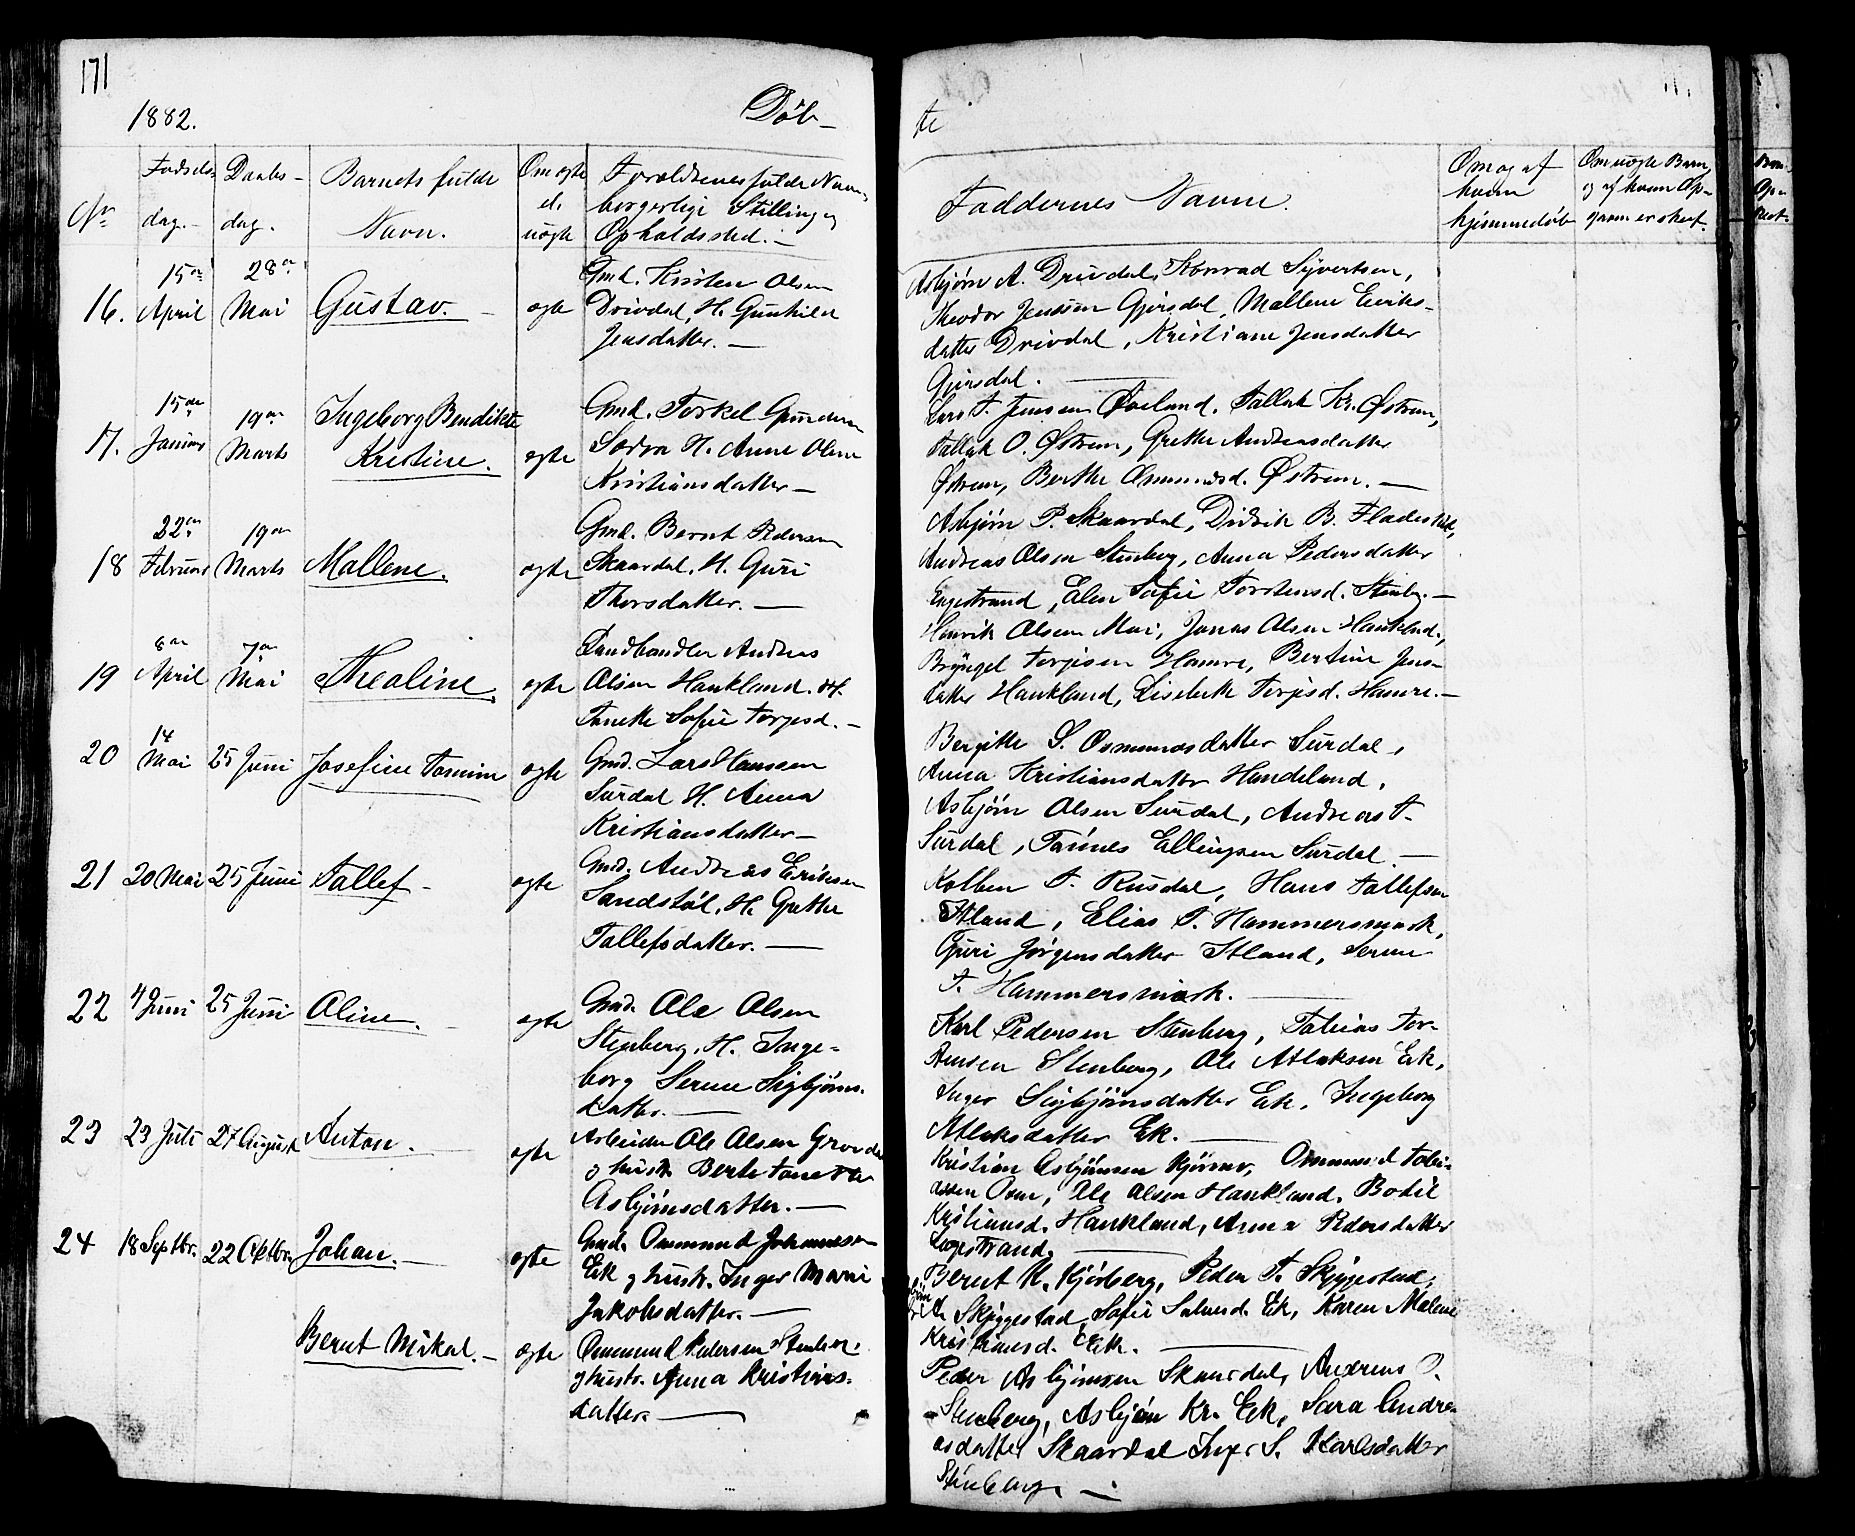 171
1882.
Døb-
te
No
Fødsels-
dag.-
Daabs-
dag.
Barnets fulde
Navn.
Om ægte
el.
uægte
Forældrenes fulde Navn,
borgerlige Stilling og
Opholdssted.-
Faddernes Navne.
Om og af
hvem
hjemmedøbt
Om uægte Barn
og af hvem Op-
gaven er skeet.
16.
15de
April
28de
Mai
Gustav.
ægte
Gmd. Kristen Olsen
Drivdal, H. Gunhild
Jensdatter.-
Asbjørn A. Drivdal, Konrad Syvertsen,
Theodor Jenssen Gjersdal, Mallene Eeriks-
datter Drivdal, Kristiane Jensdatter
Gjersdal.
17.
15de
Januar
19de
Marts
Ingeborg Bendikte
Kristine.
ægte
Gmd. Torkel Gunders
H. Anne Oline
Kristiansdatter-
Lars T. Jenssen Øveland. Tallak Kr. Østrem,
Tallak O. Østrem, Grethe Andreasdatter
Østrem, Berthe Osmundsd. Østrem.-
18
22de
Februar
19de
Marts
Mallene.
ægte
Gmd. Bernt Pedersen
Skaardal, H. Guri
Thorsdatter.-
Asbjørn P. Skaardal, Didrik B. Fladeskid,
Andreas Olsen Stenberg, Anna Pedersdatter
Engestrand, Elen Sofie Torstensd. Stenbg.-
19
8de
April
7de
Mai
Thealine.
ægte
Landhandler Andreas
Olsen Haukland. H.
Tanette Sofie Torjesd.-
Henrik Olsen Moi, Jonas Olsen Haukland,
Bryngel Torjesen Hamre, Bertine Jens-
datter Haukland, Lisebeth Torjesd. Hamre.-
20
14
Mai
25 Juni
Josefine Tomine
ægte
Gmd. Lars Hanssen
Surdal H. Anna
Kristiansdatter-
Bergitte S. Osmundsdatter Surdal,
Anna Kristiansdatter Handeland,
Asbjørn Olsen Surdal, Andreas T.
Surdal, Tønnes Ellingsen Surdal.-
21
20 Mai
25 Juni
Tallef-
ægte
Gmd. Andreas Eriksen
Sandstøl, H. Grethe
Tallefsdatter.-
Kolben T. Rusdal, Hans Tallefsen
Itland, Elias T. Hammersmark,
Guri Jørgensdatter Itland, Serine
T. Hammersmark.
22
4 Juni
25 Juni
Oline.
ægte
Gmd. Ole Olsen
Stenberg, H. Inge-
borg Serine Sigbjørns-
datter.
Karl Pedersen Stenberg, Tobias Tor-
stensen Stenberg, Ole Atlaksen Eek,
Inger Sigbjørnsdatter Eek, Ingeborg
Atlaksdatter Ek.
23
23 Juli
27 August
Anton.
ægte
Arbeider Ole Olsen
og hustr. Berte Tonette
Asbjørnsdatter.-
Kristian Asbjørnsen Osmund Tobi-
assen Ole Olsen Haukland, Bodil
Kristiansd. Haukland, Anna Pedersdatter
Engestrand.
24
18 Septbr.
22 Oktbr.
Johan.-
ægte
Gmd. Osmund Johannessen
Eek og hustr. Inger Marie
Jakobsdatter.-
Bernt K. Kjørberg, Peder T. Skjeggestad,
Skjeggestad, Sofie Salvesd. Ek, Karen Malene
Kristiansd. Eek.
Bernt Mikal.-
ægte
Osmund Pedersen Stenberg
og hustr. Anna Kristians-
datter.-
Peder Asbjørnsen Skaardal, Andreas O.
Stenberg, Asbjørn Kr. Eek, Sara Andre-
asdatter Skaardal Inger S. Karlsdatter
Stenberg.-